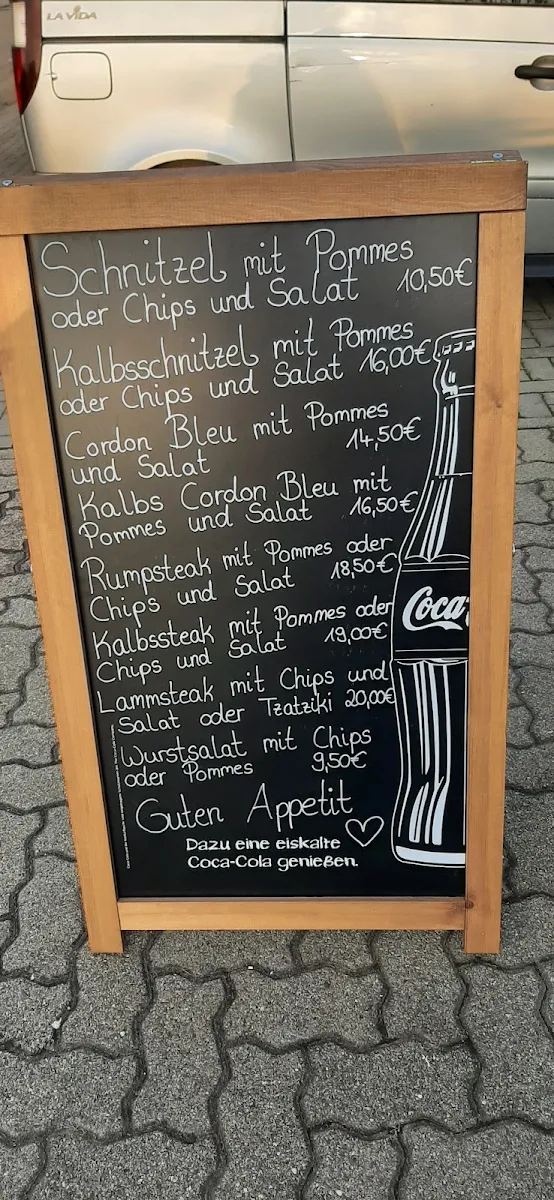 LA VIDA
Schnitzel mit Pommes
oder Chips und Salat 10,50€
Kalbsschnitzel mit Pommes
oder Chips und Salat 16,00€
Cordon Bleu mit Pommes
und Salat 14,50€
Kalbs Cordon Bleu mit
Pommes und Salat 16,50€
Rumpsteak mit Pommes oder
Chips und Salat 18,50€
Kalbssteak mit Pommes oder
Chips und Salat 19,00€
Lammsteak mit Chips und
Salat oder Tzatziki 20,00€
Wurstsalat mit Chips
oder Pommes 9,50€
Guten Appetit
Dazu eine eiskalte
Coca-Cola genießen.
Coca